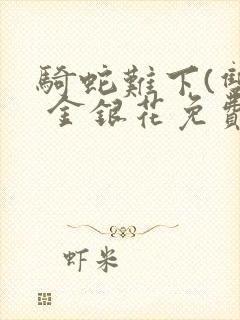 騎蛇難下(雙
金銀花免費
虾米